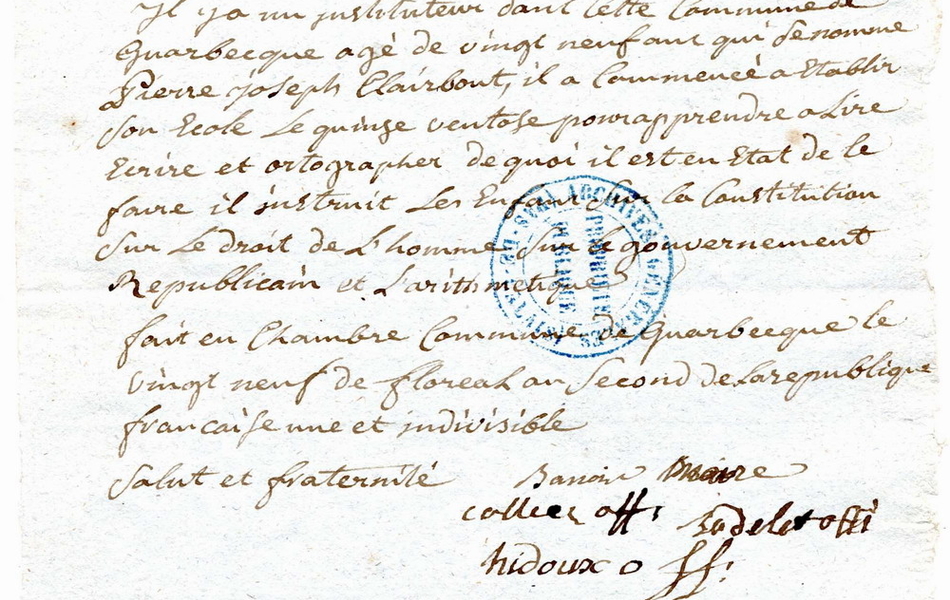 Il y a un instituteur dans cette Commune de
Guarbecque agé de vingt neuf ant qui se nomme
Pierre joseph Clairbout, il a Commencé a Etablir
son Ecole Le quinse ventose pour apprendre a Lire
Ecrire et ortographer de quoi il est en Etat de le
faire il instruit Les Enfans sur la Constitution
sur Le droit de L'homme sur le gouvernement
Republicain et L'arithmetique
fait en Chambre Commune de Guarbecque le
vingt neuf de floreal an Second de La republique
francaise une et indivisible
Salut et fraternité
maire
collier off.
offi
hidoux off.
ARCHIVES GENERALES
PROPRIETE
PUBLIQUE